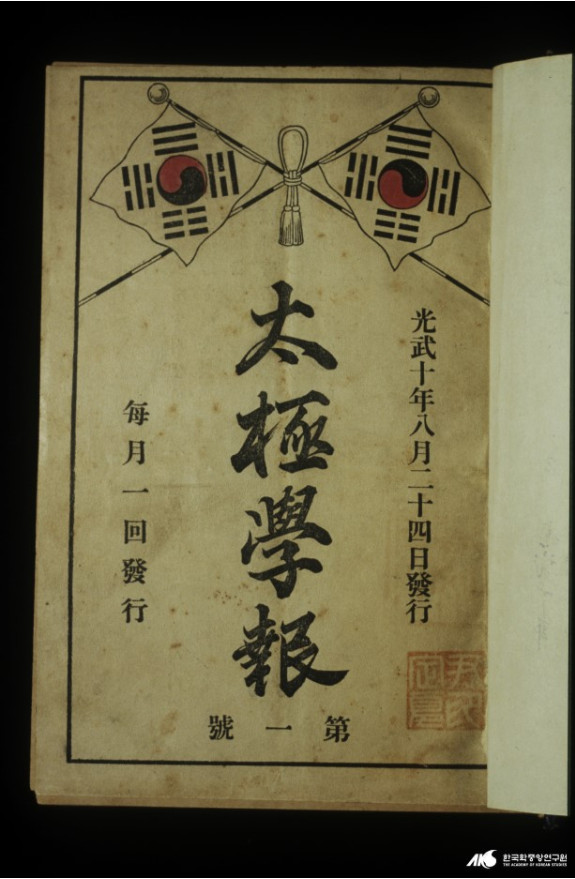 光武十年八月二十四日發行
太極學報
每月一回發行
第一號
한국학중앙연구원
THE ACADEMY OF KOREAN STUDIES